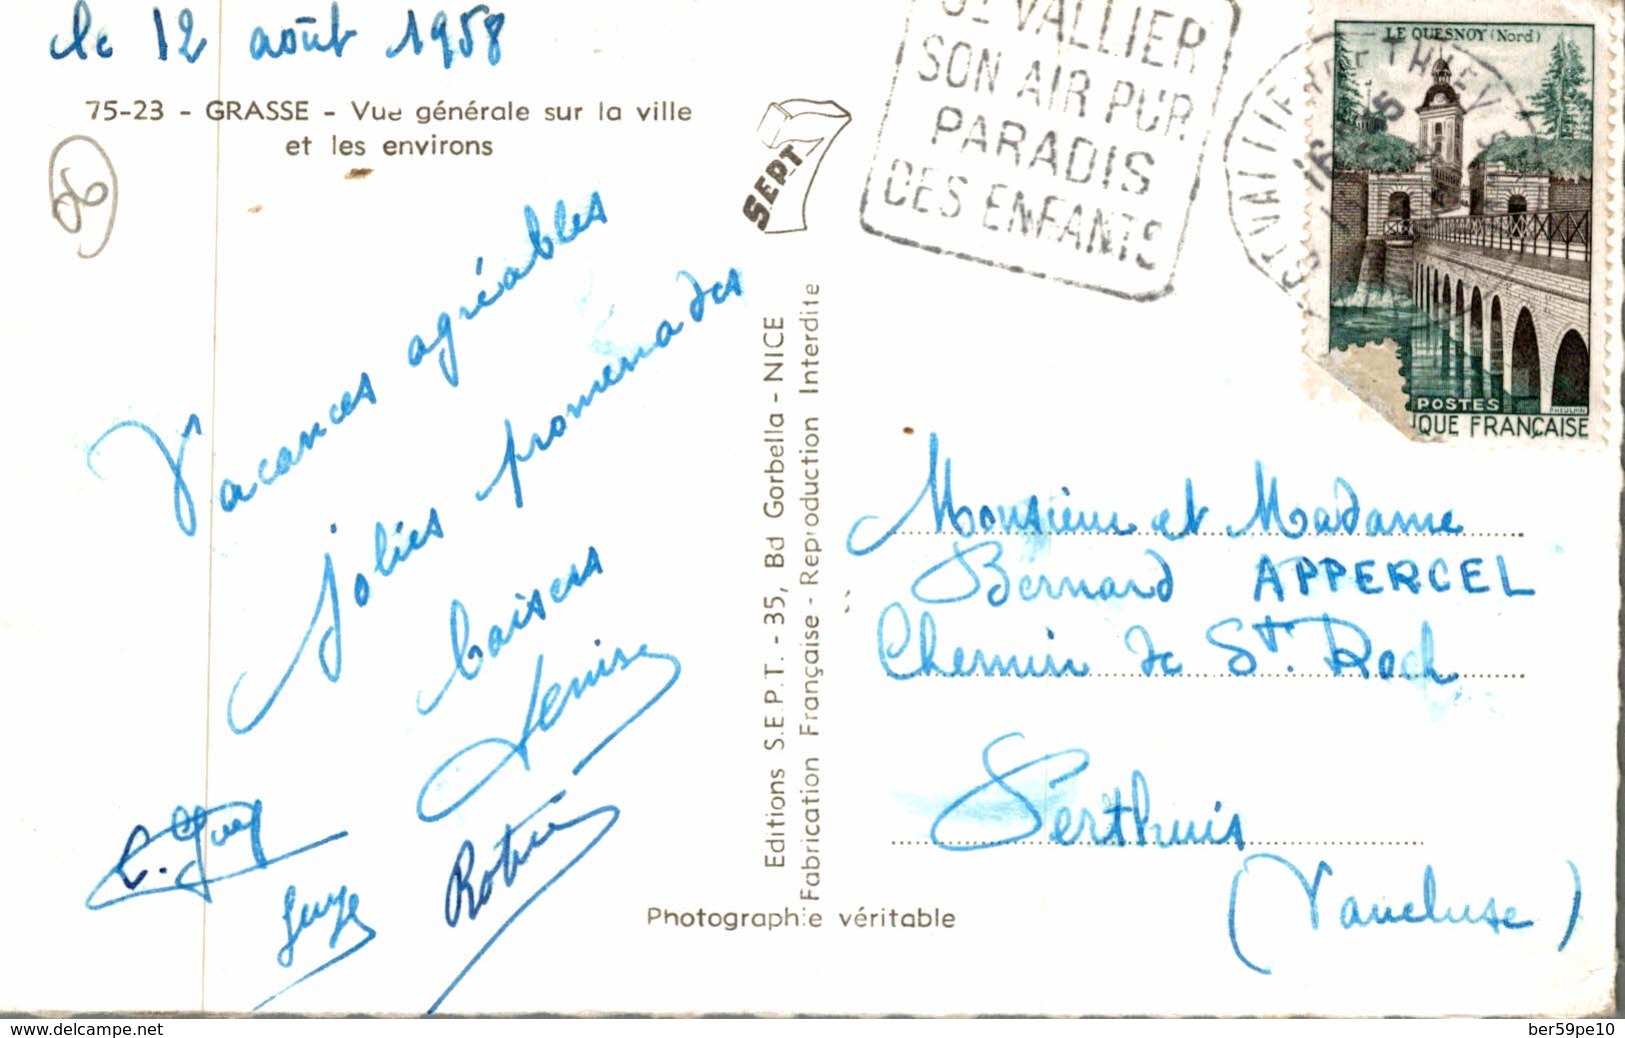 le 12 août 1958
75-23 - GRASSE - Vue générale sur la ville
et les environs
SEPT
Vacances agréables
jolies promenades
baisers
Denise
Editions S.E.P.T. - 35, Bd Gorbella - NICE
Fabrication Française - Reproduction Interdite
Photographie véritable
ST VALLIER
SON AIR PUR
PARADIS
DES ENFANTS
LE QUESNOY (Nord)
POSTES
IQUE FRANÇAISE
Monsieur et Madame
Bernard APPERCEL
Chemin de St. Roch
Perthuis
(Vaucluse)
www.delcampe.net
ber59pe10